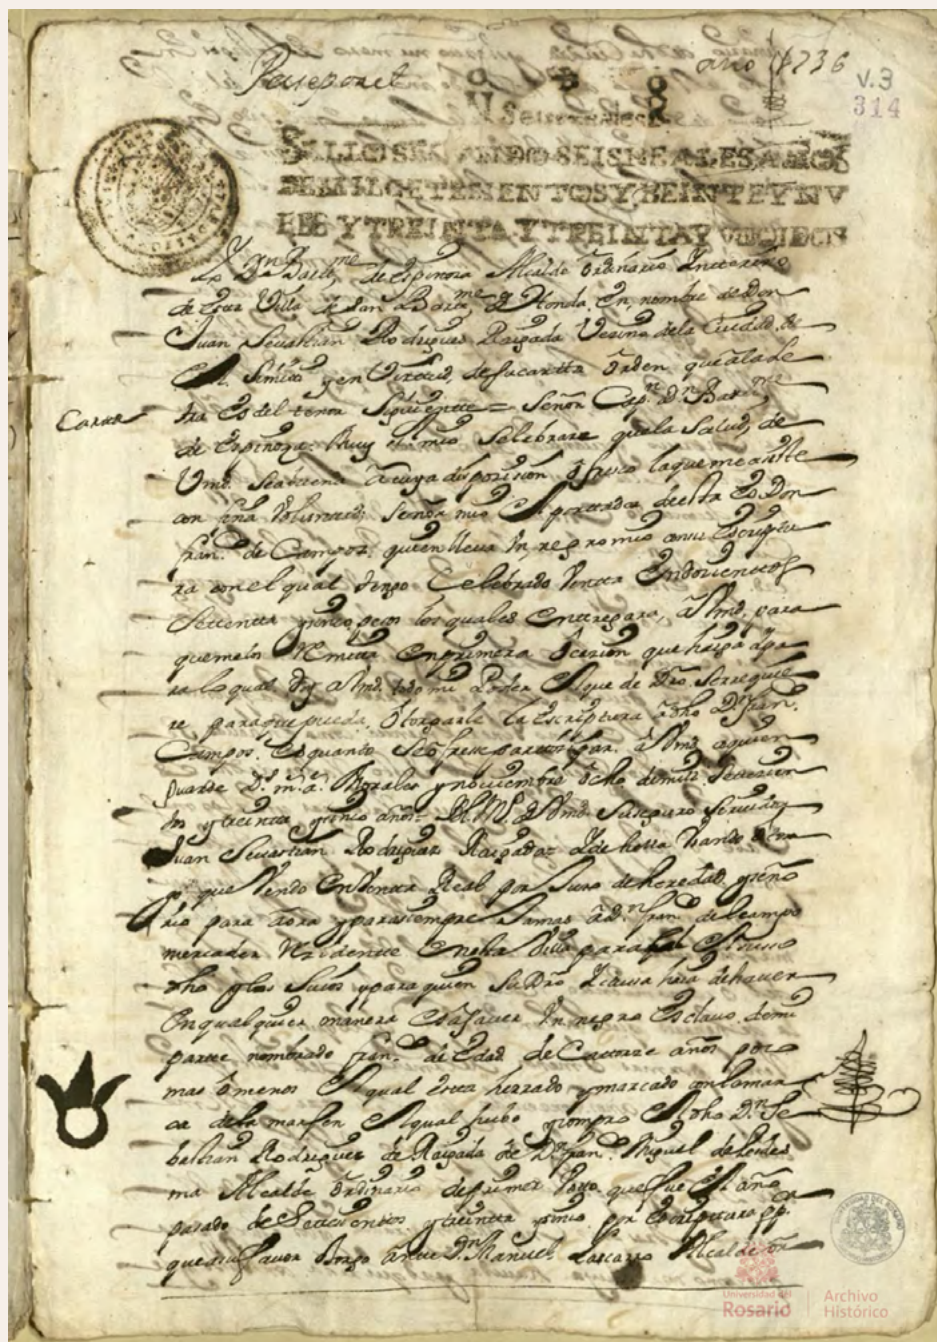 año 1736
V.3
314
SELLO SEGVNDO SEIS REALES AÑOS
DE MIL SETECIENTOS Y BEINTE Y NV
EBE Y TREINTA Y TREINTA Y VNO
de Espinosa Alcalde Ordinario
de esta Villa de San Bar.me de Honda en nombre de Don
Juan Sevastian Rodrigues Raigada Vesino de la Ciudad de
y en Virtud, de su carta orden que a la le
Carta
tra es del tenor siguiente = Señor Cap.n D.n Bar.me
de Espinosa. Muy s.r mio selebrare que la salud, de
Vmd. sea buena a cuya disposision ofresco la que me asiste
con voluntad; señor mio el portador de esta es Don
fran.co de Campos. quien lleva un negro mio con su escriptu
ra con el qual tengo selebrado venta en dosientos
settenta y sinco pesos los quales entregara, a Vmd. para
que me los remita en primera ocasion que haiga a
ra lo qual doy a Vmd. todo mi Poder el que de Dro. se requie
re para que pueda otorgarle la escriptura a dho D.n fran.co
Campos. es quanto se ofrese partisipar. a Vmd. a quien
Guarde D.s m.s a.s Morales y noviembre ocho de mil settesien
tos y treinta y sinco años = B.L.M. de Vmd. su seguro servidor
Juan Sevastian Rodrigues Raigada =
que Vendo en Venta Real por Juro de heredad y seño
rio para aora y para siempre Jamas a D.n fran.co de Campos
mercader residente en esta Villa para el suso
dho y los suios y para quien su Dro y causa haia de haver
en qualquier manera es a saver un negro esclavo de mi
parte nombrado fran.co de edad de Catorse años poco
mas o menos el qual esta herrado y marcado con la mar
ca de la marjen el qual hubo y compro el dho D.n Se
bastian Rodrigues de Raigada de D.n fran.co Miguel de Ledes
ma Alcalde ordinario de primer voto que fue el año
pasado de settesientos y treinta y sinco por escriptura pp.ca
que a su favor otorgo ante D.n Manuel Lascarro Alcalde or
Universidad del
Rosario
Archivo
Histórico